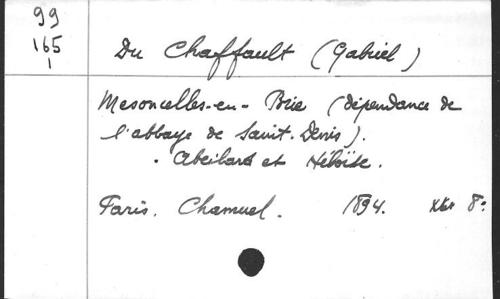 99
165
1
Du Chaffault (Gabriel)
Mesoncelles-en-Brie (dépendance de
l'abbaye de Saint-Denis).
. Abeilard et Héloïse.
Paris. Chamuel. 1894. 8º